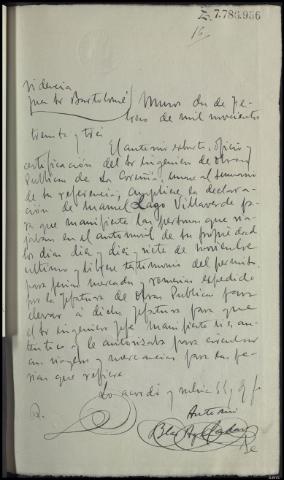 Z.7.786.936
16
Providencia
Juez Sr Bartolomé / Muros dos de Fe-
brero de mil novecientos
treinta y tres
El anterior exhorto, oficio y
certificación del Sr Ingeniero de Obras
Publicas de La Coruña, unase al sumario
de su referencia, ampliese la declara-
ción de Manuel Lago Villaverde pa-
ra que manifieste las personas que via-
jaban en el automovil de su propiedad
los dias diez y diez y siete de noviembre
ultimo y librese testimonio del permiso
para ferias mercados y romerias expedido
por la Jefatura de Obras Publicas para
elevar a dicha Jefatura para que
el Sr Ingeniero Jefe manifieste si es au-
téntico y le autorizaba para circular
con viajeros y mercancias para las fe-
rias que refiere
Lo acordó y rubrica SSª y fe
Antemi